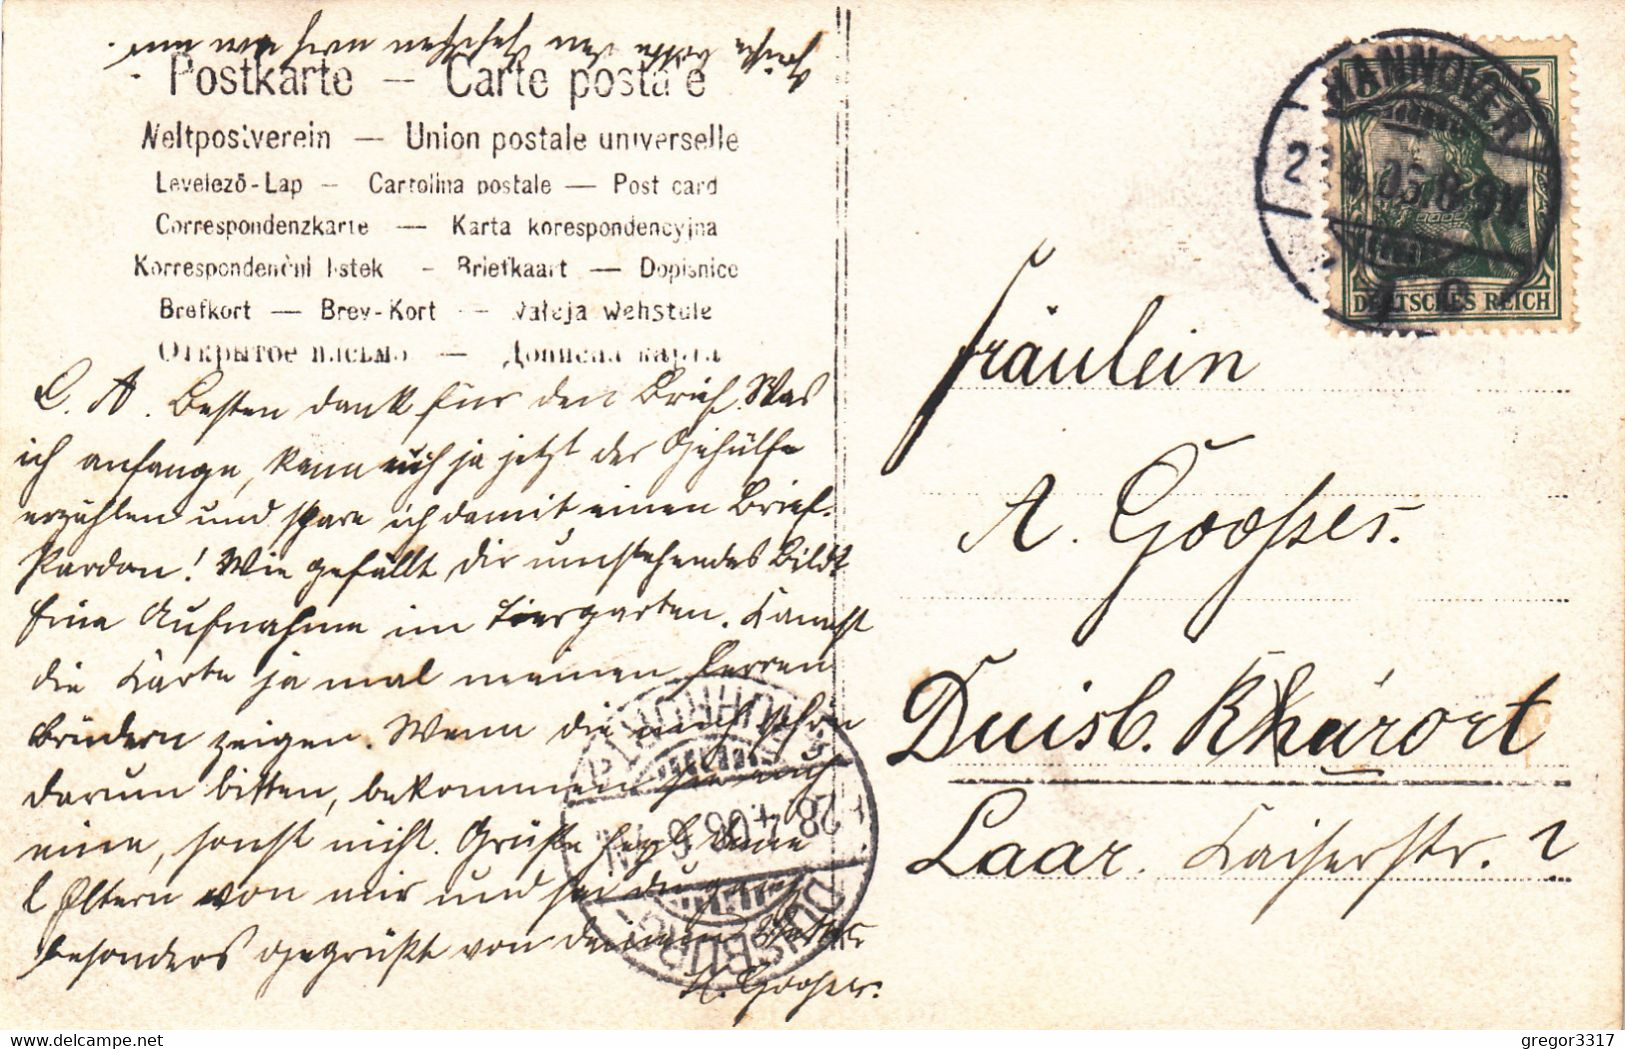 Postkarte — Carte postale
Weltpostverein — Union postale universelle
Levelező-Lap — Cartolina postale — Post card
Correspondenzkarte — Karta korespondencyjna
Korrespondenční lístek - Briefkaart — Dopisnice
Brefkort — Brev-Kort — Waleja wehstule
Открытое письмо — Дописна карта
L. A. Besten Dank für den Brief. Was
ich anfange, kann euch ja jetzt der Gehülfe
erzählen und spare ich damit einen Brief.
Pardon! Wie gefällt dir umstehendes Bild?
Eine Aufnahme im Tiergarten. Kannst
die Karte ja mal meinen Herren
Brüdern zeigen. Wenn die mich schön
darum bitten, bekommen sie auch
eine, sonst nicht. Grüße herzl. deine
l. Eltern von mir und sei du ganz
besonders gegrüßt von deinem Vetter
H. Gooßes.
HANNOVER
5
DEUTSCHES REICH
Fräulein
A. Gooßes.
Duisb. Ruhrort
Laar. Kaiserstr. 2
DUISBURG-RUHRORT
28.4.06
gregor3317